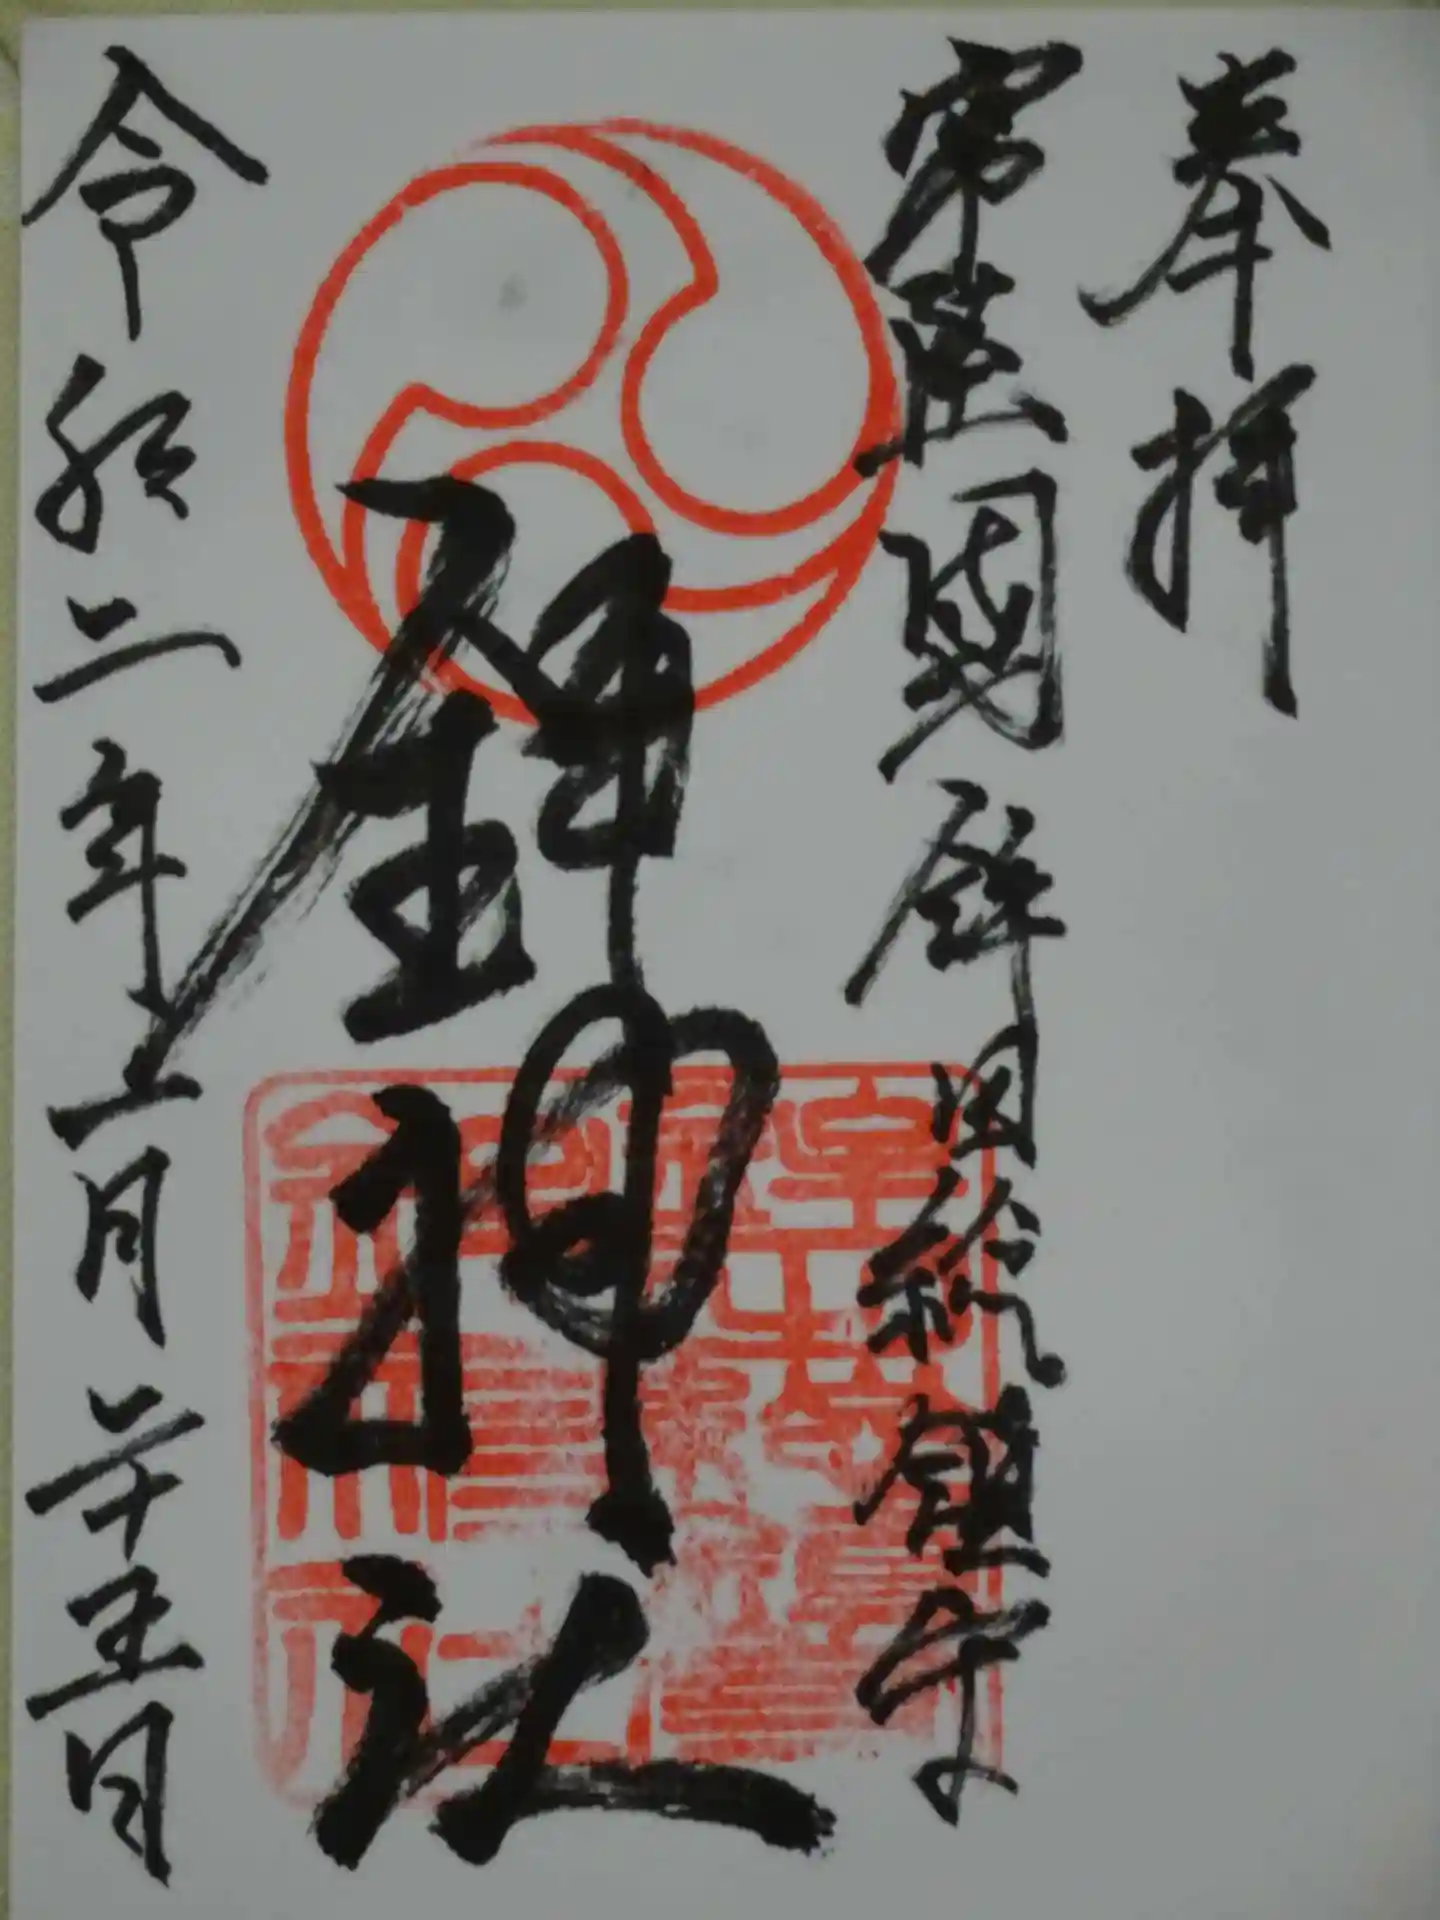 奉拝
常陸國鉾田総鎮守
鉾神社
令和二年十一月二十五日